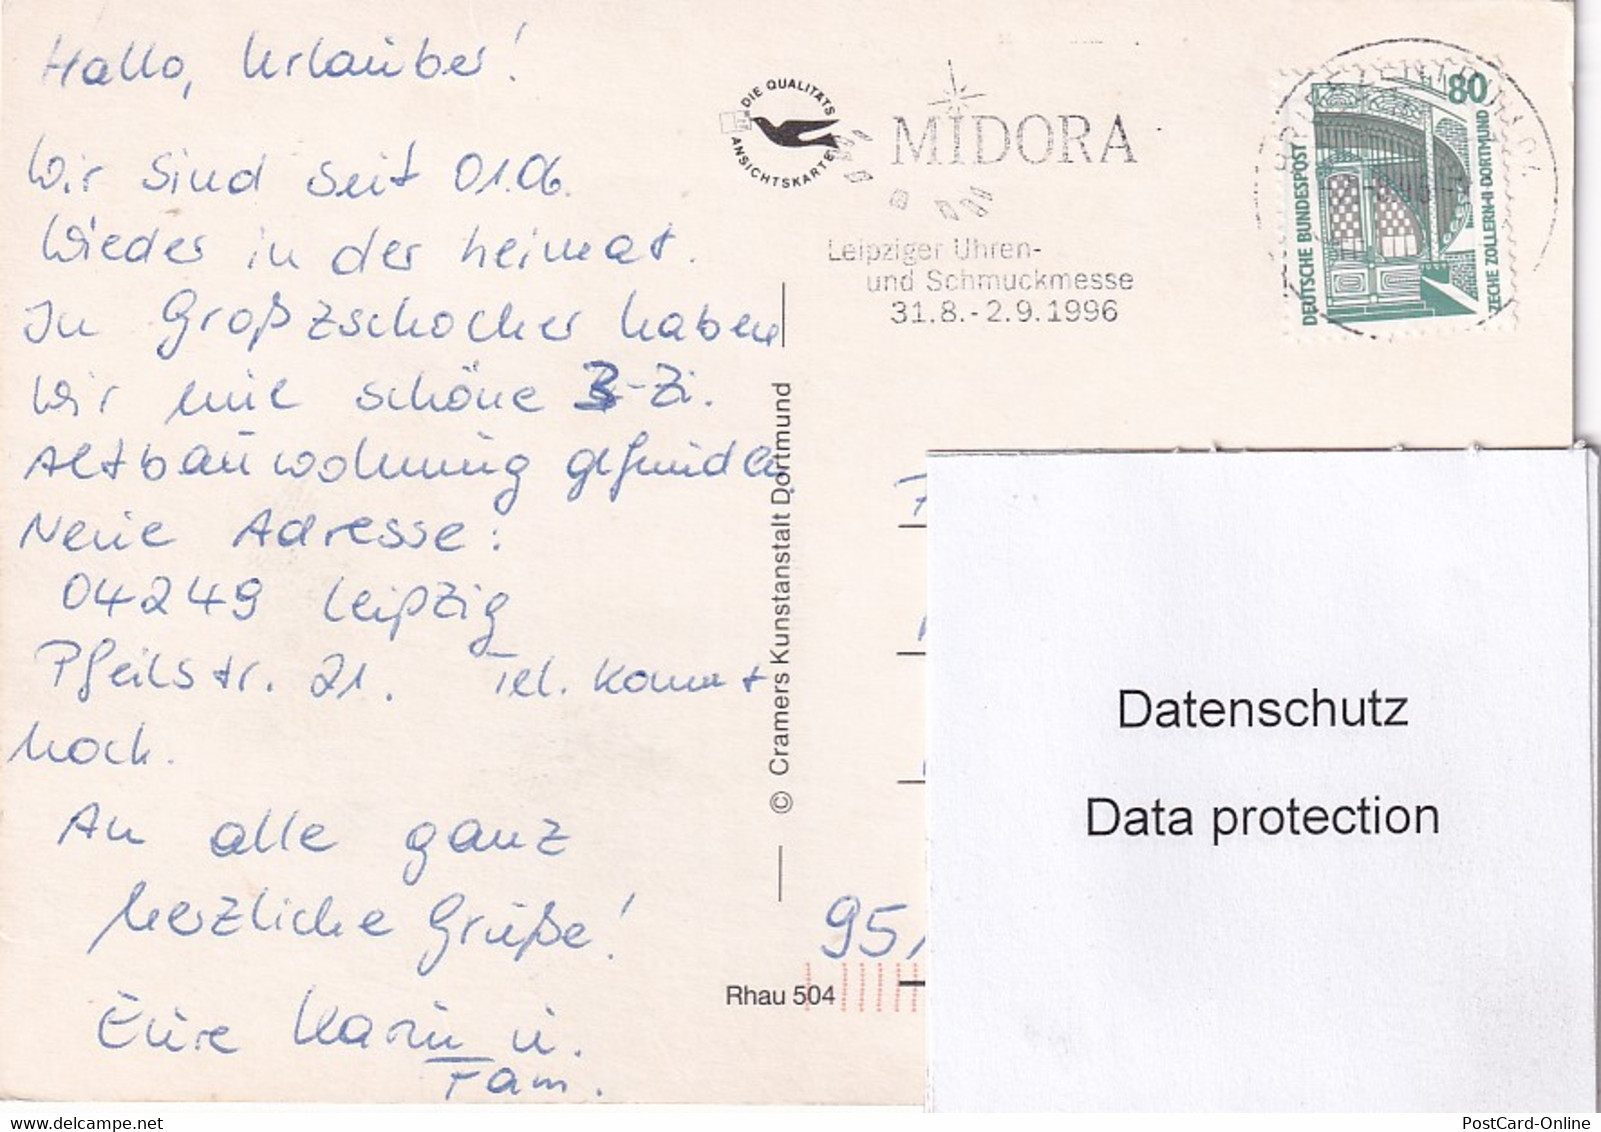 Hallo, Urlauber!
Wir sind seit 01.06.
Wieder in der Heimat.
In Großzschocher haben
wir eine schöne 3-Zi.
Altbauwohnung gefunden.
Neue Adresse:
04249 Leipzig
Pfeilstr. 21. Tel. kommt
noch.
An alle ganz
herzliche Grüße!
Eure Karin u.
Fam.
DIE QUALITÄTS
ANSICHTSKARTE
MIDORA
Leipziger Uhren-
und Schmuckmesse
31.8.-2.9.1996
80
DEUTSCHE BUNDESPOST
ZECHE ZOLLERN II DORTMUND
BRIEFZENTRUM
© Cramers Kunstanstalt Dortmund
95
Rhau 504
Datenschutz
Data protection
PostCard-Online